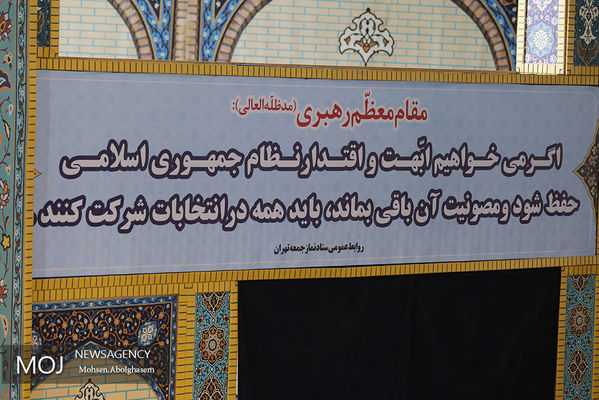 مقام معظّم رهبری (مدظلّه‌العالی):
اگر می خواهیم ابّهت و اقتدار نظام جمهوری اسلامی
حفظ شود و مصونیت آن باقی بماند، باید همه در انتخابات شرکت کنند
روابط عمومی ستاد نماز جمعه تهران
MOJ NEWSAGENCY
Mohsen.Abolghasem